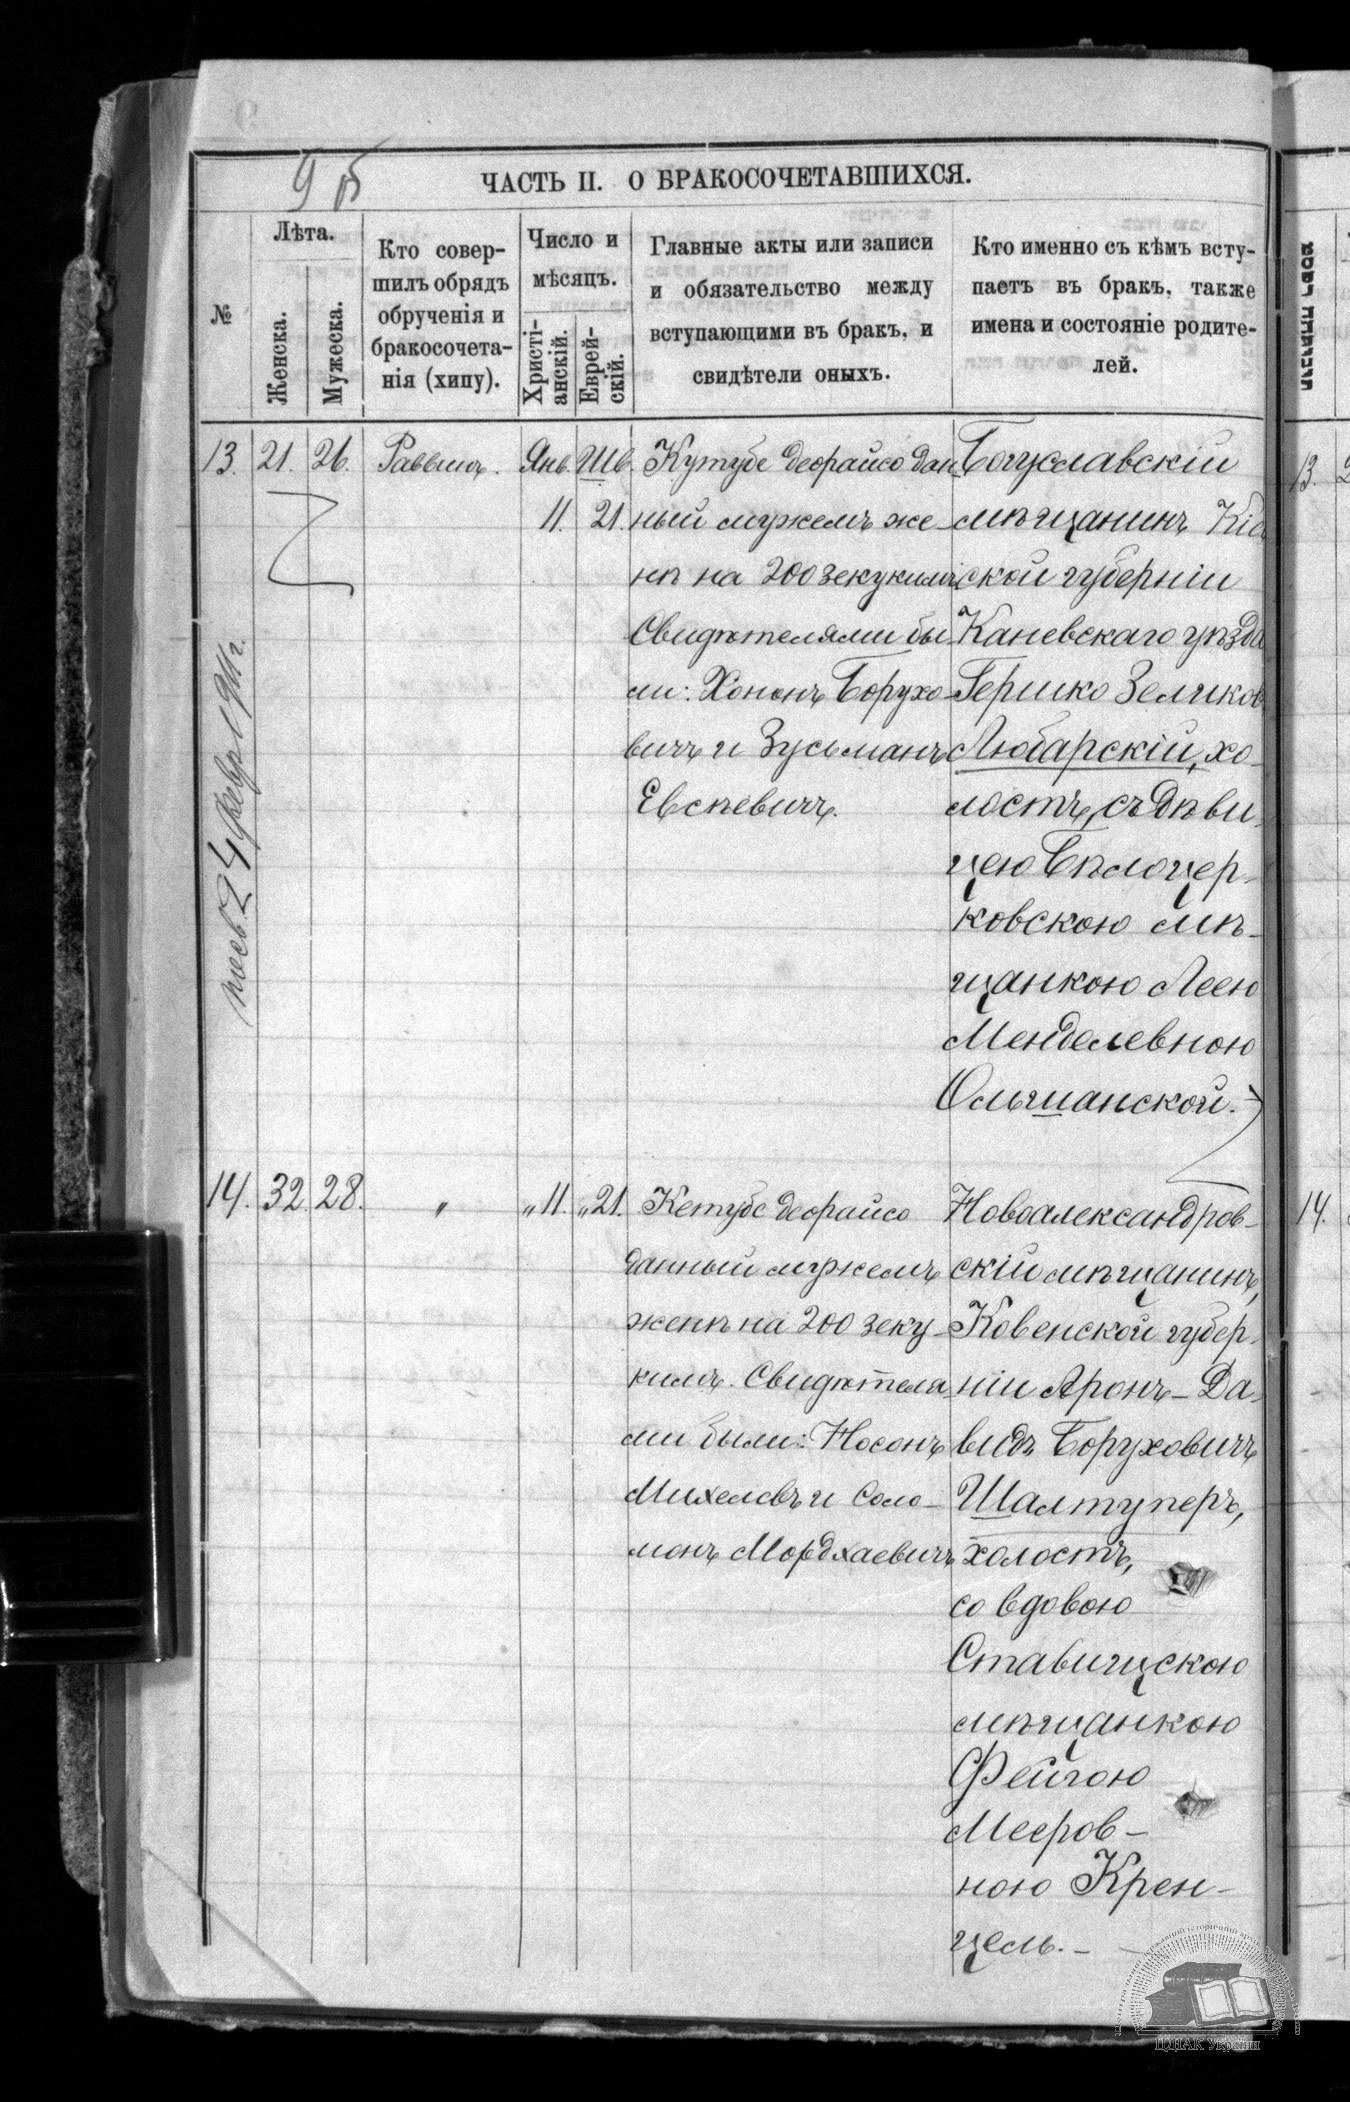 9 об
ЧАСТЬ II. О БРАКОСОЧЕТАВШИХСЯ.
№
Лѣта.
Женска.
Мужеска.
Кто совер-
шилъ обрядъ
обрученія и
бракосочета-
нія (хипу).
Число и
мѣсяцъ.
Христі-
анскій.
Еврей-
скій.
Главные акты или записи
и обязательство между
вступающими въ бракъ, и
свидѣтели оныхъ.
Кто именно съ кѣмъ всту-
паетъ въ бракъ, также
имена и состояніе родите-
лей.
13. 21. 26. Раввинъ. Янв. Шв.
11. 21.
Кутубе деорайсо дан-
ный мужемъ же-
нѣ на 200 зекукимъ
Свидѣтелями бы-
ли: Хононъ Борухо-
вичъ и Зусьманъ
Евсѣевичъ.
Богуславскій
мѣщанинъ Кіев
ской губерніи
Каневскаго уѣзда
Гершко Зеликов
Любарскій, хо-
лостъ, съ дѣви-
цею Бѣлоцер-
ковскою мѣ-
щанкою Леею
Менделевною
Ольшанской.
24 февр 1911 г.
14. 32. 28. " " 11. " 21.
Кетубе деорайсо
данный мужемъ
женѣ на 200 зеку-
кимъ. Свидѣтеля
ми были: Носонъ
Михелевъ и Соло-
монъ Мордхаевичъ
Новоалександров-
скій мѣщанинъ,
Ковенской губер-
ніи Аронъ-Да-
видъ Боруховичъ
Шалтуперъ,
холостъ,
со вдовою
Ставищскою
мѣщанкою
Фейгою
Мееров-
ною Крен-
цель.-
13.
14.
ЦДІАК України